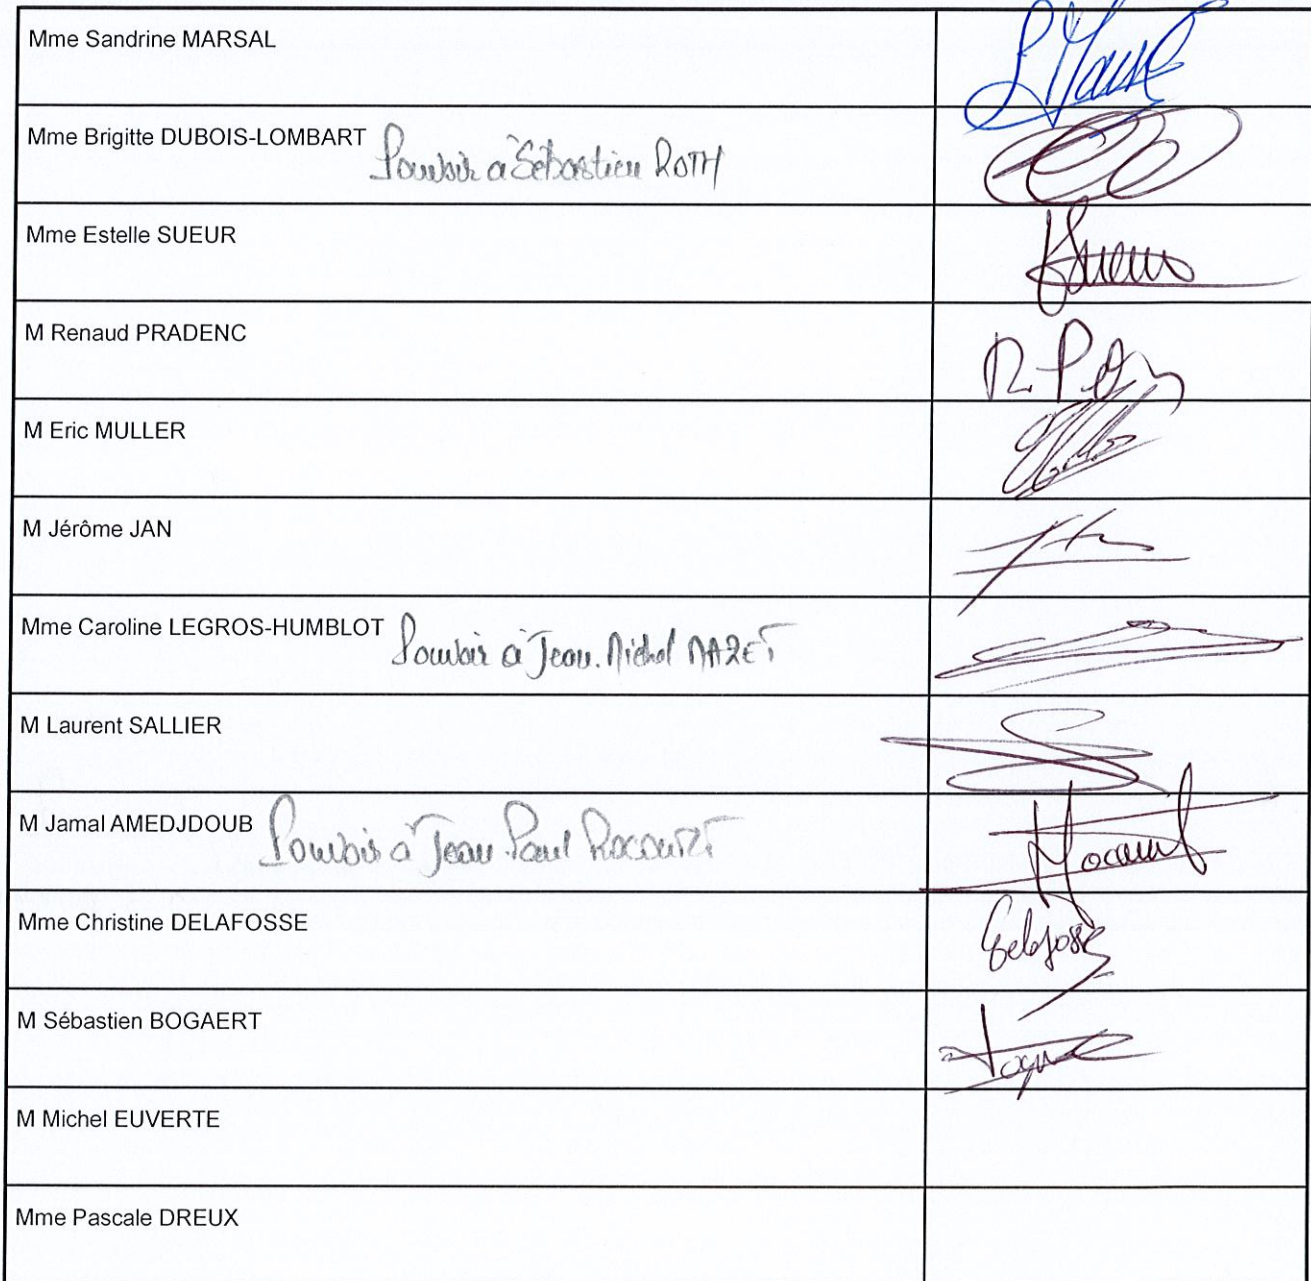 Mme Sandrine MARSAL
Mme Brigitte DUBOIS-LOMBART Pouvoir à Sébastien ROTH
Mme Estelle SUEUR
M Renaud PRADENC
M Eric MULLER
M Jérôme JAN
Mme Caroline LEGROS-HUMBLOT Pouvoir à Jean-Michel MAZET
M Laurent SALLIER
M Jamal AMEDJDOUB Pouvoir à Jean Paul ROCOURT
Mme Christine DELAFOSSE
Delafosse
M Sébastien BOGAERT
M Michel EUVERTE
Mme Pascale DREUX